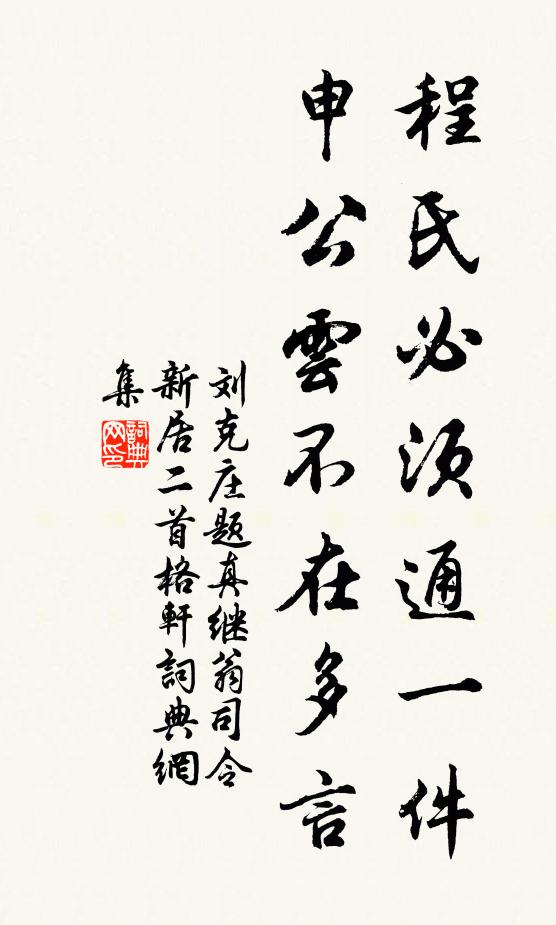 程氏必須通一件
申公雲不在多言
刘克庄题真继翁司令
新居二首格軒詞典網
集
詞典網印